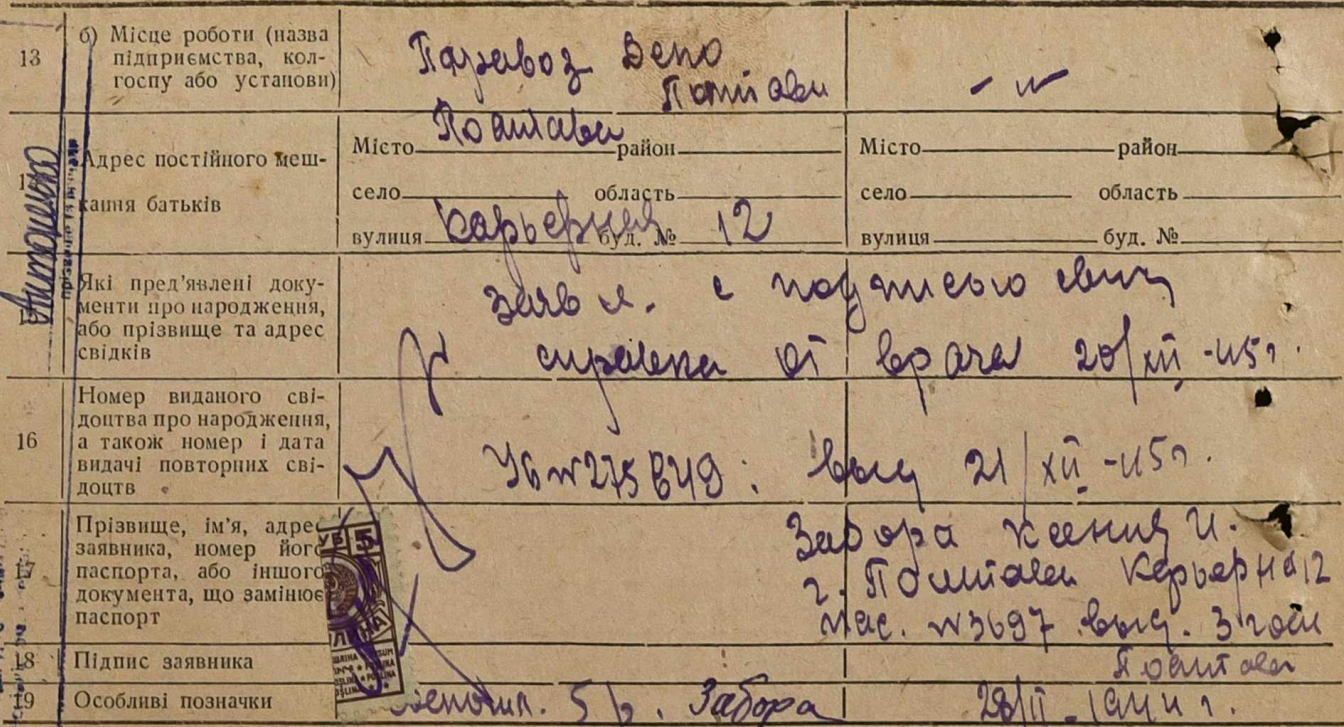 13 б) Місце роботи (назва
підприємства, кол-
госпу або установи)
Паравоз Депо
Полтави
- " -
Адрес постійного меш-
кання батьків
Полтава
Місто район
село область
вулиця Карьерная буд. № 12
Місто район
село область
вулиця буд. №
Які пред'явлені доку-
менти про народження,
або прізвище та адрес
свідків
заявл. с подписью
справка от врача 20/XII-45г.
16 Номер виданого сві-
доцтва про народження,
а також номер і дата
видачі повторних сві-
доцтв
№275849: выд 21/XII-45г.
17 Прізвище, ім'я, адрес
заявника, номер його
паспорта, або іншого
документа, що замінює
паспорт
Забора Ксения И.
г. Полтава Карьерна 12
пас. №3697 выд. 3
Полтава
18 Підпис заявника
19 Особливі позначки
5 р. Забора 1944 г.
Антоненко
прізвище
РУБ 5